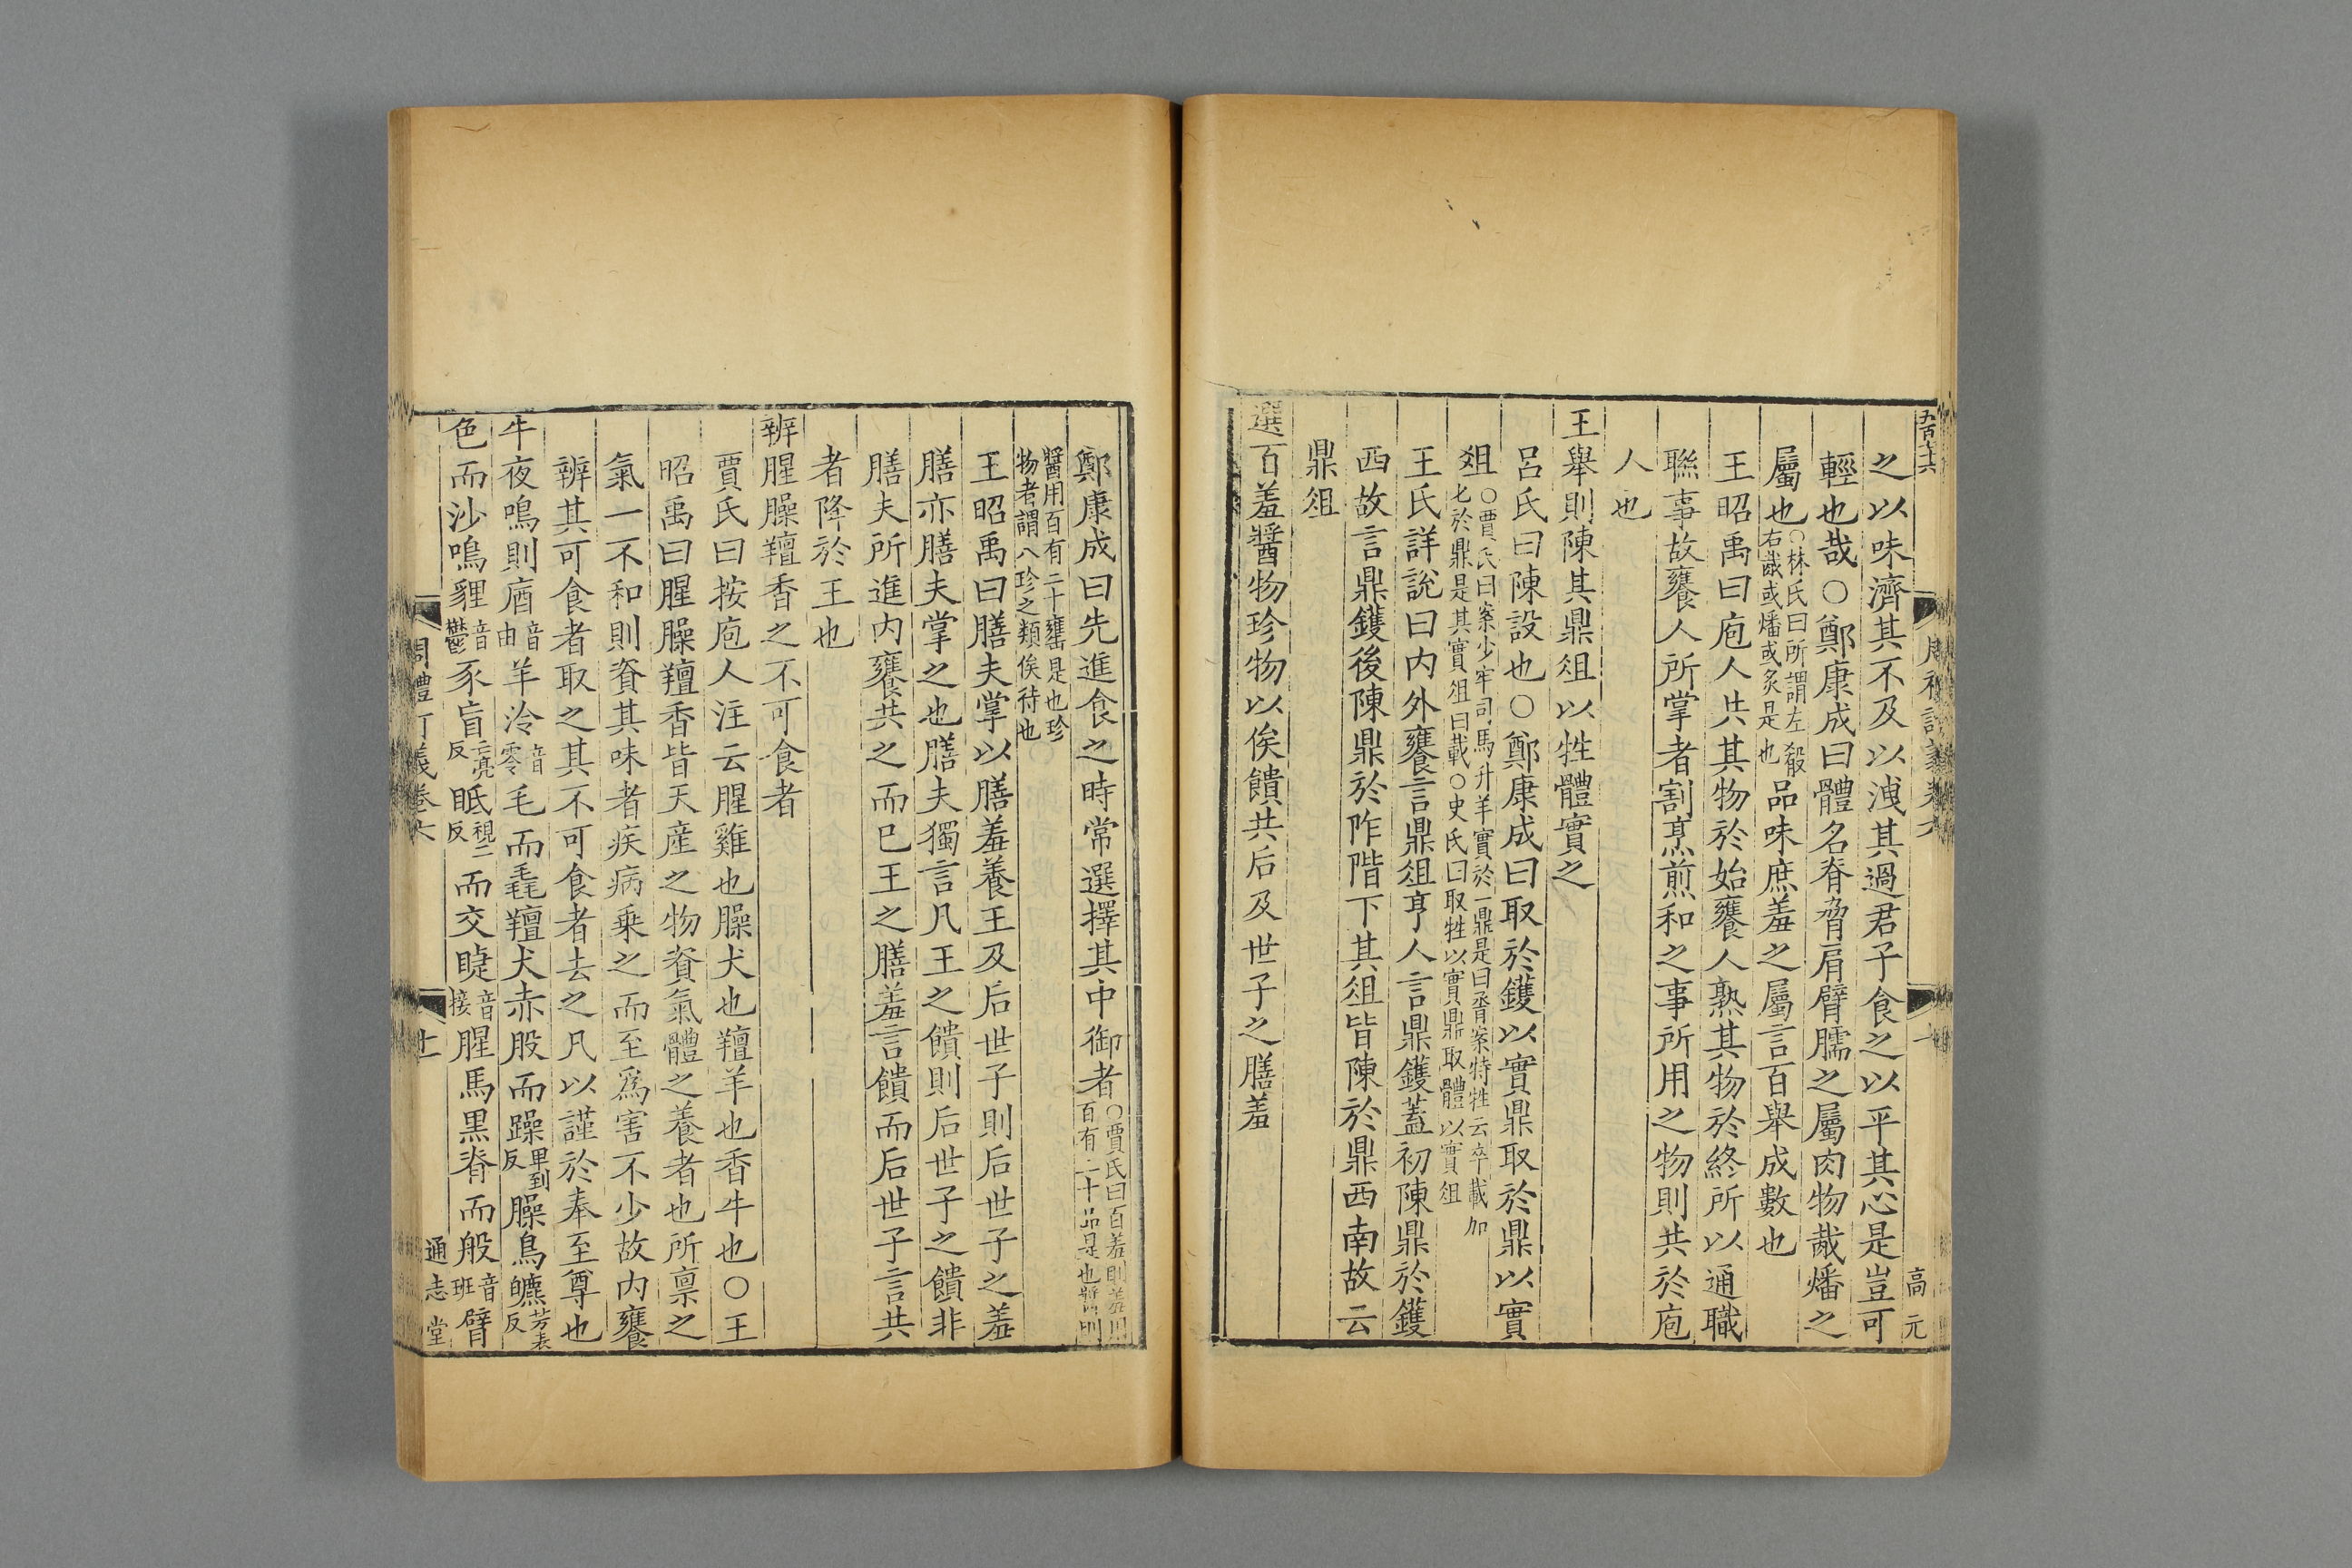 五百七十六
高元
之以味濟其不及以洩其過君子食之以平其心是豈可
輕也哉○鄭康成曰體名脊脅肩臂臑之屬肉物胾燔之
屬也○林氏曰所謂左殽右胾或燔或炙是也品味庶羞之屬言百舉成數也
王昭禹曰庖人共其物於始饔人熟其物於終所以通職
聮事故饔人所掌者割烹煎和之事所用之物則共於庖
人也
王舉則陳其鼎俎以牲體實之
呂氏曰陳設也○鄭康成曰取於鑊以實鼎取於鼎以實
俎○賈氏曰案少牢司馬升羊實於一鼎是曰脀案特牲云卒載加匕於鼎是其實俎曰載○史氏曰取牲以實鼎取體以實俎
王氏詳說曰內外饔言鼎俎亨人言鼎鑊蓋初陳鼎於鑊
西故言鼎鑊後陳鼎於阼階下其俎皆陳於鼎西南故云
鼎俎
選百羞醬物珍物以俟饋共后及世子之膳羞
鄭康成曰先進食之時常選擇其中御者○賈氏曰百羞則羞用百有二十品是也醬則
醬用百有二十罋是也珍物者謂八珍之類俟待也
王昭禹曰膳夫掌以膳羞養王及后世子則后世子之羞
膳亦膳夫掌之也膳夫獨言凡王之饋則后世子之饋非
膳夫所進內饔共之而已王之膳羞言饋而后世子言共
者降於王也
辨腥臊羶香之不可食者
賈氏曰按庖人注云腥雞也臊犬也羶羊也香牛也○王
昭禹曰腥臊羶香皆天産之物資氣體之養者也所禀之
氣一不和則資其味者疾病乗之而至爲害不少故內饔
辨其可食者取之其不可食者去之凡以謹於奉至尊也
牛夜鳴則庮音由羊泠音零毛而毳羶犬赤股而躁早到反臊鳥皫芳表反
色而沙鳴貍音鬱豕盲亡亮反眡視二反而交睫音接腥馬黒脊而般音班臂
周禮訂義卷六
十一
通志堂